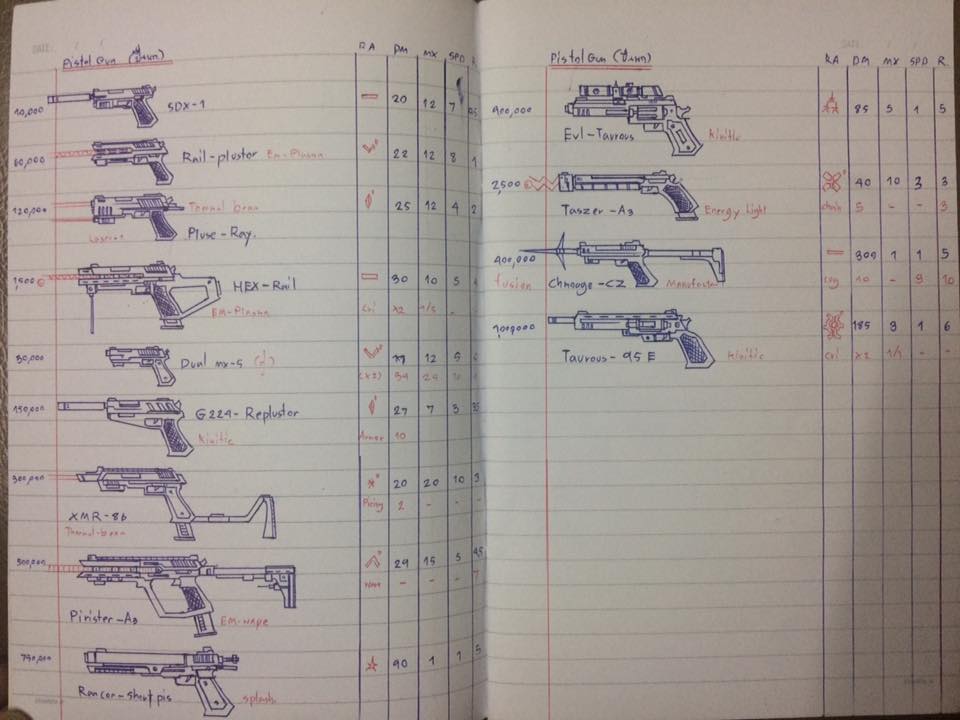 Pistol Gun (ปืนพก) RA DM MX SPD R
10,000 SDX-1 20 12 7
60,000 Rail-pluster Em-Plasma 22 12 8 1
120,000 Thermal bean 25 12 4 2
Pluse-Ray.
1,500 HEX-Rail 30 10 5
EM-Plasma Cri x2 1/5 -
30,000 Dual mx-5 12 5
(x2) 34 24
150,000 G224-Replustor 27 7 3 35
Kinitic Armor 10
300,000 20 20 10 3
XMR-86 Picing 2 - -
Thermal-bean
500,000 29 15 5 4.5
- - - 7
Pirister-A3 EM-wape
790,000 90 1 1 5
Rancor-Shout pis splash
Pistol Gun (ปืนพก) RA DM MX SPD R
900,000 85 5 1 5
Evl-Taurous Kinitic
2,500 40 10 3 3
Taszer-A3 Energy light chain 5 - - 3
400,000 300 1 1 5
fusion Chnouge-CZ 10 - 9 10
185 3 1 6
Taurous-95E Kinitic Cri x2 1/1 - -